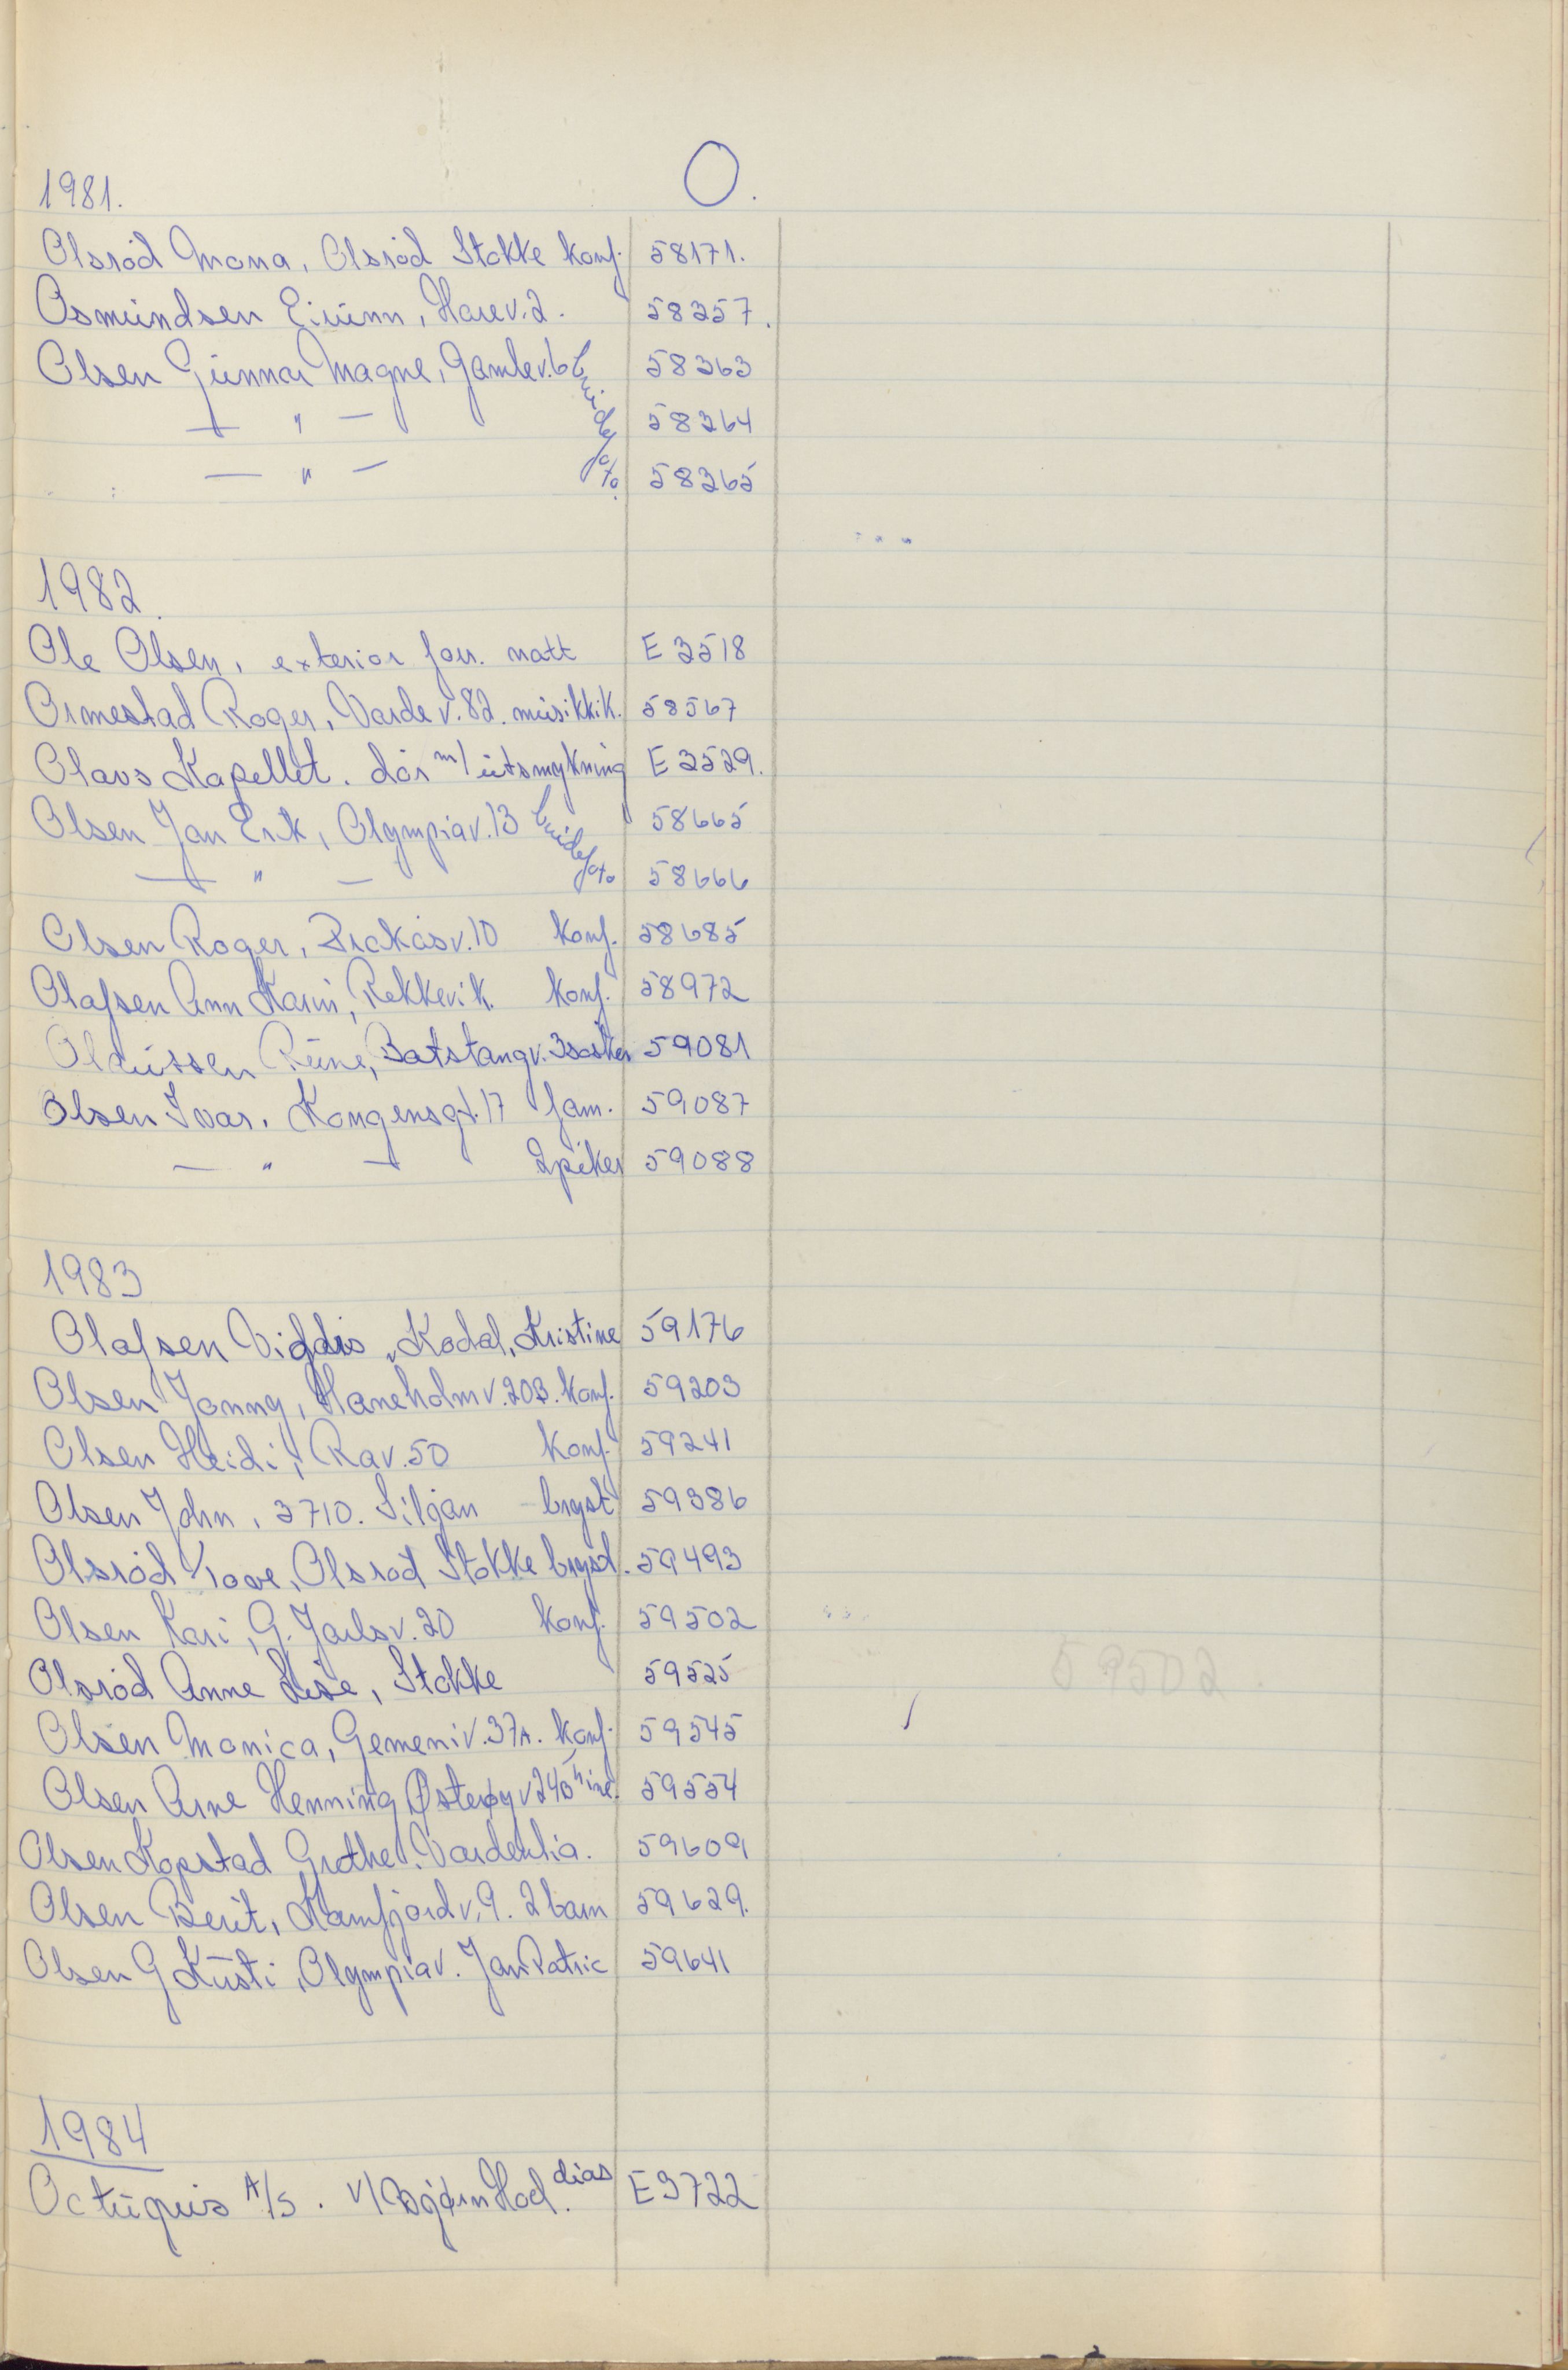 O.
1981.
Olsrød Mona, Olsrød Stokke konf. 58171.
Osmundsen Eivinn, Harev. 2. 58257.
Olsen Gunnar Magne, Gamlev. 6 brudefoto. 58363
— " — 58364
— " — 58365
1982.
Ole Olsen, exterior fou. natt E 3518
Ormestad Roger, Varde v. 82. musikkk. 58567
Olavs Kapellet. dør m/ utsmykning E 3529.
Olsen Jan Erik, Olympiav. 13 brudefoto 58665
— " — 58666
Olsen Roger, Brekåsv. 10 konf. 58685
Olafsen Ann Karin, Rekkevik. konf. 58972
Rune, Båtstangv. 3 søsken 59081
Olsen Ivar, Kongensgt. 17 fam. 59087
— " — 2 piker 59088
1983
Olafsen Vigdis, Kodal, Kristine 59176
Olsen Jonny, Haneholmv. 20B. konf. 59203
Olsen Heidi, Rav. 50 konf. 59241
Olsen John, 3710. Siljan bryst 59386
Olsrød Tove, Olsrød Stokke bryst. 59493
Olsen Kari, G. Jarlsv. 20 konf. 59502
59502
Olsrød Anne Lise, Stokke 59525
Olsen Monica, Gemeniv. 37A. konf. 59545
Olsen Arne Henning Østerøyv 240 59554
Olsen Kopstad Grethe. Vardenlia. 59609
Olsen Berit, Kamfjordv. 9. 2 barn 59629.
Olsen G Kirsti, Olympiav. Jan Patric 59641
1984
Octupus A/S. v/Bjørn Hod. dias E3722